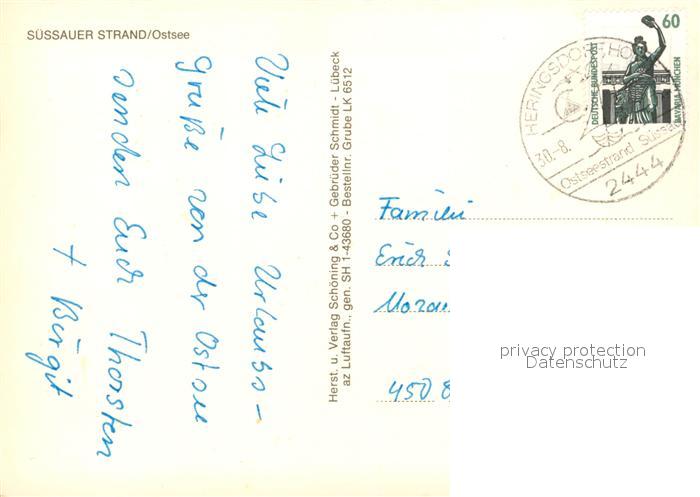 SÜSSAUER STRAND/Ostsee
Viele Liebe Urlaubs-
grüße von der Ostsee
senden Euch Thorsten
+ Birgit
Herst. u. Verlag Schöning & Co + Gebrüder Schmidt - Lübeck
az Luftaufn., gen. SH 1-43680 - Bestellnr. Grube LK 6512
60
DEUTSCHE BUNDESPOST
BAVARIA MÜNCHEN
HERINGSDORF, HO
30.-8.
Ostseestrand Süssau
2444
Familie
Erich
450
privacy protection
Datenschutz